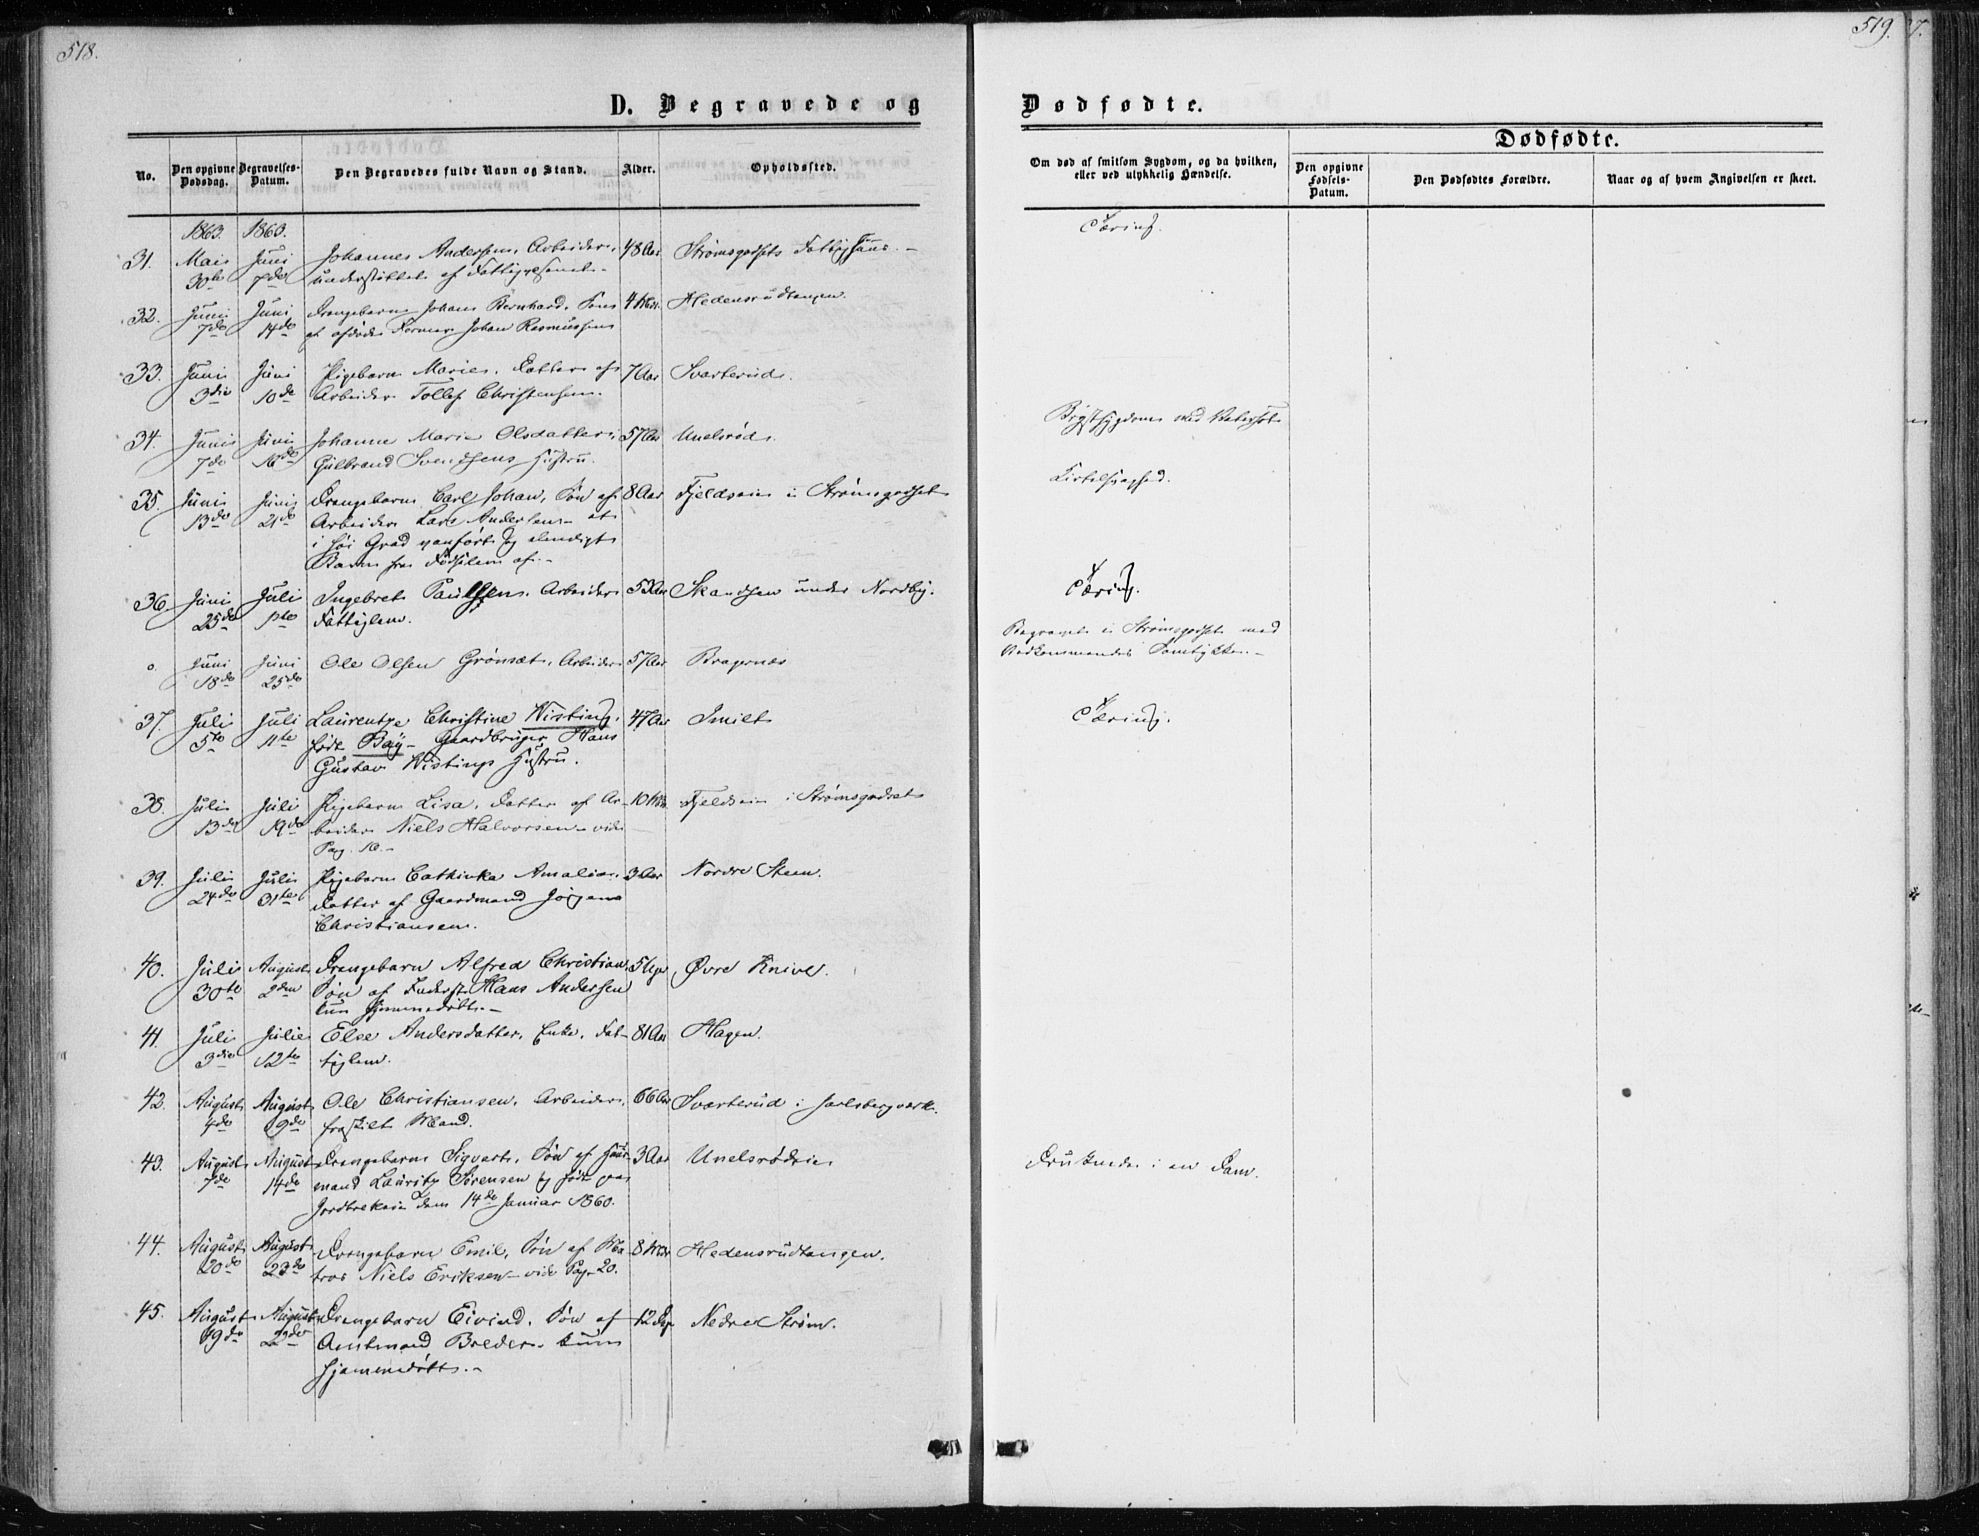 518.
D. Begravede og
No.
Den opgivne Dødsdag.
Begravelses-Datum.
Den Begravedes fulde Navn og Stand.
Alder.
Opholdssted.
1863. 1863.
31. Mai 30te Juni 7de Johannes Andersen, Arbeider, 48 Aar Strømsgodsets Fattighuus.
understøttet af Fattigvæsenet.
32. Juni 7de Juni 14de Drengebarn Johan Bernhard, Søn 4 Mdr. Hedensrudtangen.
af afdøde Former Johan Rasmussen
33. Juni 3die Juni 10de Pigebarn Marie, Datter af 7 Aar Svarterud.
Arbeider Tollef Christensen.
34. Juni 7de Juni 16de Johanne Marie Olsdatter, 57 Aar Unelsrød.
Gulbrand Svendsens Hustru.
35. Juni 13de Juni 21de Drengebarn Carl Johan, Søn af 8 Aar Fjeldseie i Strømsgodset
Arbeider Lars Andersen - et
i høi Grad vanført og elendigt
Barn fra Fødselen af. -
36. Juni 25de Juli 1ste Ingebret Paulsen, Arbeider 53 Aar Skandsen under Nordby.
Fattiglem.
o. Juni 18de Juni 25de Ole Olsen Grønsæt, Arbeider 57 Aar Bragernæs
37. Juli 5te Juli 11te Laurentze Christine Wisting, 47 Aar Smilt
født Bay - Gaardbruger Hans
Gustav Wistings Hustru.
38. Juli 13de Juli 19de Pigebarn Lisa, Datter af Ar- 10 Mdr. Fjeldseie i Strømsgodset
beider Niels Halvorsen - vide
Pag. 10. -
39. Juli 24de Juli 31te Pigebarn Cathinka Amalia, 3 Aar Nordre Steen.
Datter af Gaardmand Jørgen
Christiansen.
40. Juli 30te August 2den Drengebarn Alfred Christian, 5 Uger Øvre Knive.
Søn af Inderst Hans Andersen
kun hjemmedøbt. -
41. Juli 3die Juli 12te Else Andersdatter, Enke, Fat- 81 Aar Hagen.
tiglem.
42. August 4de August 9de Ole Christiansen, Arbeider, 66 Aar Svarterud i Jarlsbergværk.
fraskilt Mand.
43. August 7de August 14de Drengebarn Sigvart, Søn af Huus- 3 Aar Unelsrødeie
mand Lauritz Sørensen og født paa
Jordbrekeie den 14de Januar 1860.
44. August 20de August 23de Drengebarn Emil, Søn af Ma- 8 Mdr Hedensrudtangen.
tros Niels Eriksen - vide Pag. 20.
45. August 19de August 29de Drengebarn Eivind, Søn af 12 Dage Nedre Strøm.
Amtmand Breder - kun
hjemmedøbt. -
519.
Dødfødte.
Om død af smitsom Sygdom, og da hvilken, eller ved ulykkelig Hændelse.
Dødfødte.
Den opgivne Fødsels-Datum.
Den Dødfødtes Forældre.
Naar og af hvem Angivelsen er skeet.
Tæring.
Brystsygdom med Vatersot
Kirtelsvaghed.
Tæring.
Begravet i Strømsgodset med
Vedkommendes Samtykke. -
Tæring.
Druknede i en Dam.